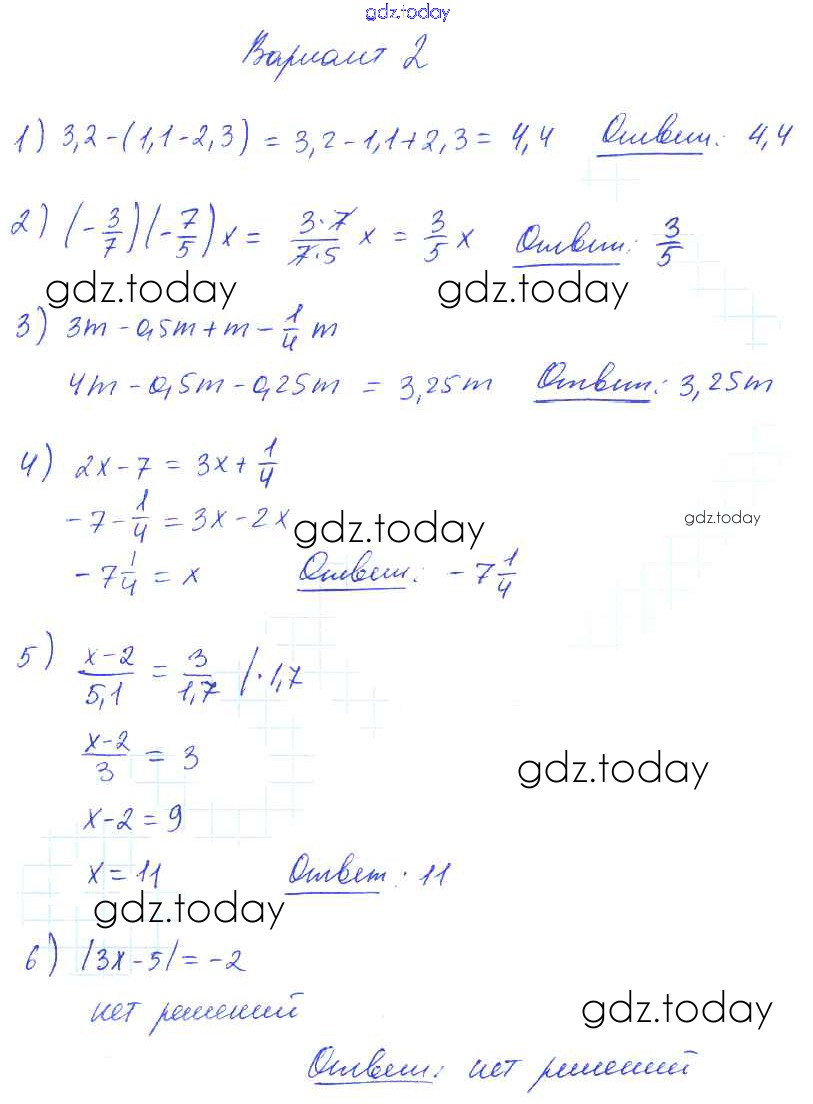 gdz.today
Вариант 2
1) 3,2-(1,1-2,3) = 3,2-1,1+2,3 = 4,4 Ответ: 4,4
2) (-3/7)(-7/5)x = 3·7/7·5 x = 3/5 x Ответ: 3/5
gdz.today gdz.today
3) 3m - 0,5m + m - 1/4 m
4m - 0,5m - 0,25m = 3,25m Ответ: 3,25m
4) 2x - 7 = 3x + 1/4
-7 - 1/4 = 3x - 2x gdz.today gdz.today
-7 1/4 = x Ответ: -7 1/4
5) x-2/5,1 = 3/1,7 /·1,7
x-2/3 = 3 gdz.today
x-2 = 9
x = 11 Ответ: 11
gdz.today
6) |3x-5| = -2
нет решений gdz.today
Ответ: нет решений